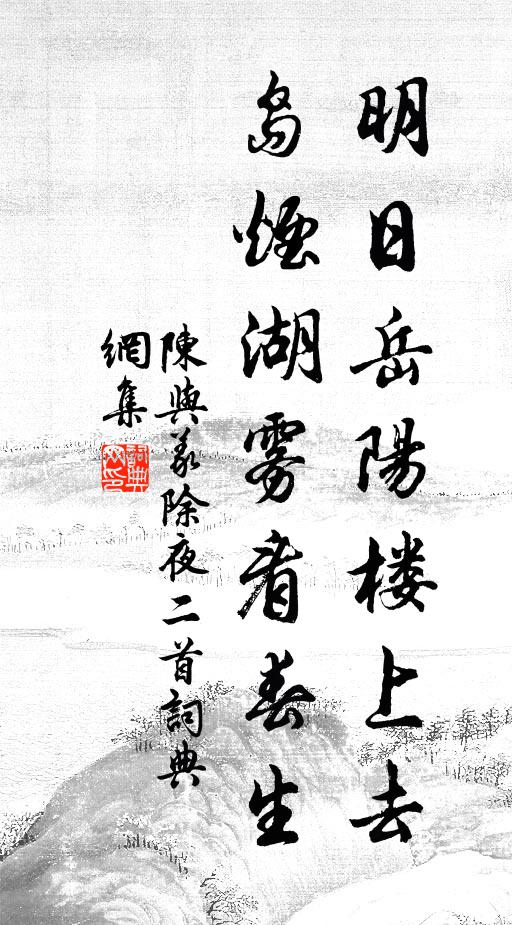 明日岳陽楼上去
島煙湖雾看春生
陳與義除夜二首詞典
網集
詞典
网印